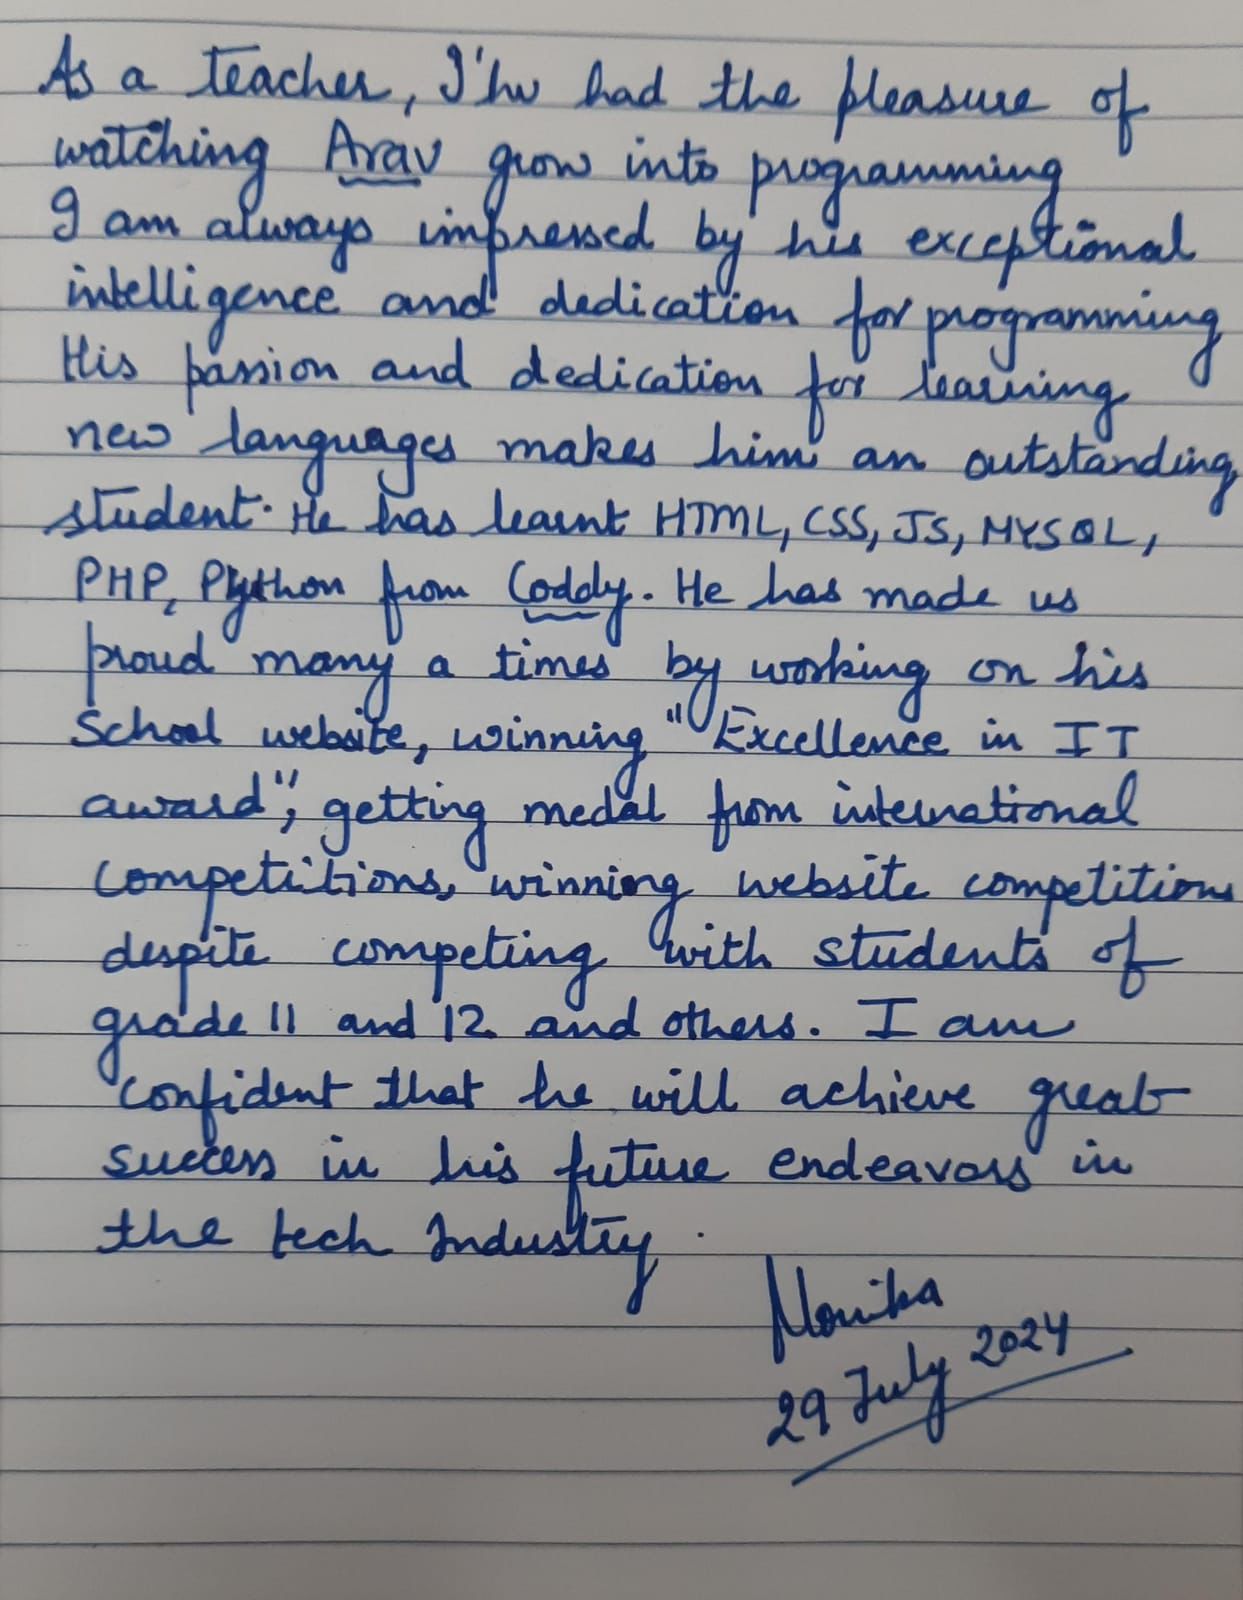 As a teacher, I've had the pleasure of
watching Arav grow into programming
I am always impressed by his exceptional
intelligence and dedication for programming
His passion and dedication for learning
new languages makes him an outstanding
student. He has learnt HTML, CSS, JS, MYSQL,
PHP, Python from Coddy. He has made us
proud many a times by working on his
School website, winning "Excellence in IT
award", getting medal from international
competitions, winning website competitions
despite competing with students of
grade 11 and 12 and others. I am
confident that he will achieve great
success in his future endeavors in
the tech Industry.
Monika
29 July 2024